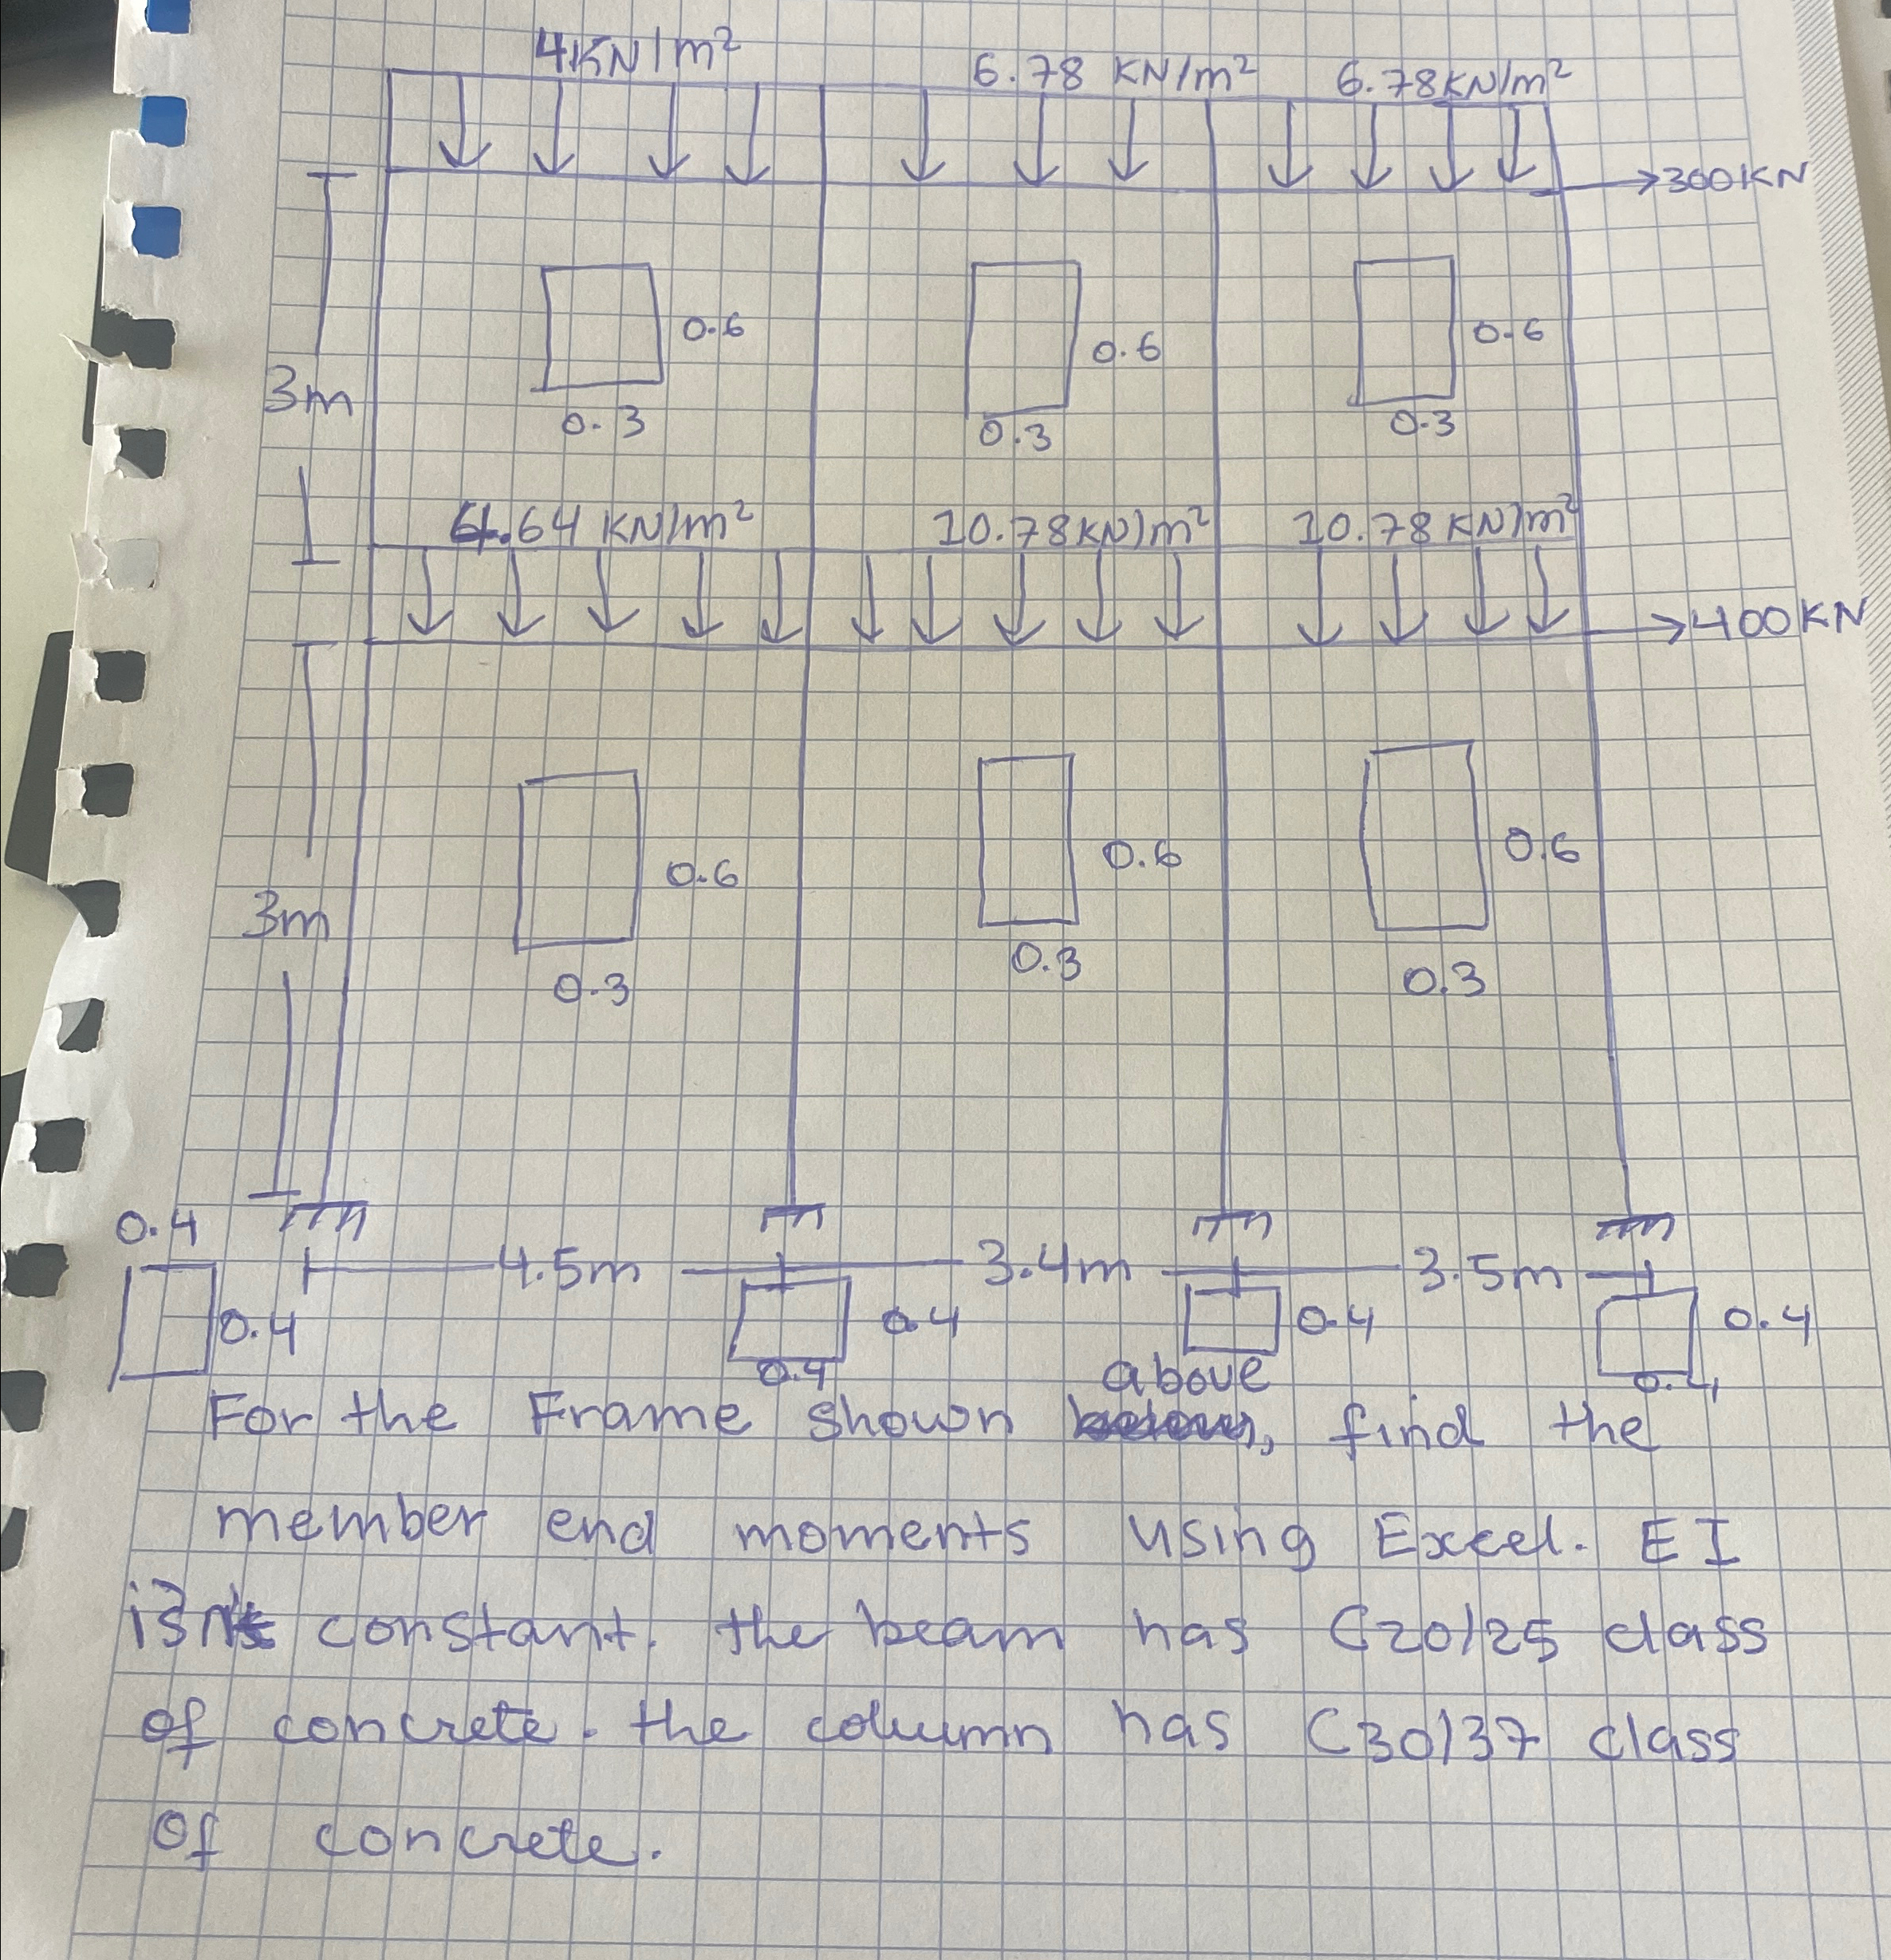 4KN/m²
6.78 KN/m²
6.78KN/m²
→300KN
0.6
0.6
0.6
3m
0.3
0.3
0.3
.64 KN/m²
10.78KN/m²
10.78KN/m²
→400KN
0.6
0.6
0.6
3m
0.3
0.3
0.3
0.4
4.5m
3.4m
3.5m
0.4
0.4
0.4
0.4
0.4
0.4
above
For the Frame shown , find the
member end moments using Excel. EI
is constant. the beam has C20/25 class
of concrete. the column has C30/37 class
of concrete.